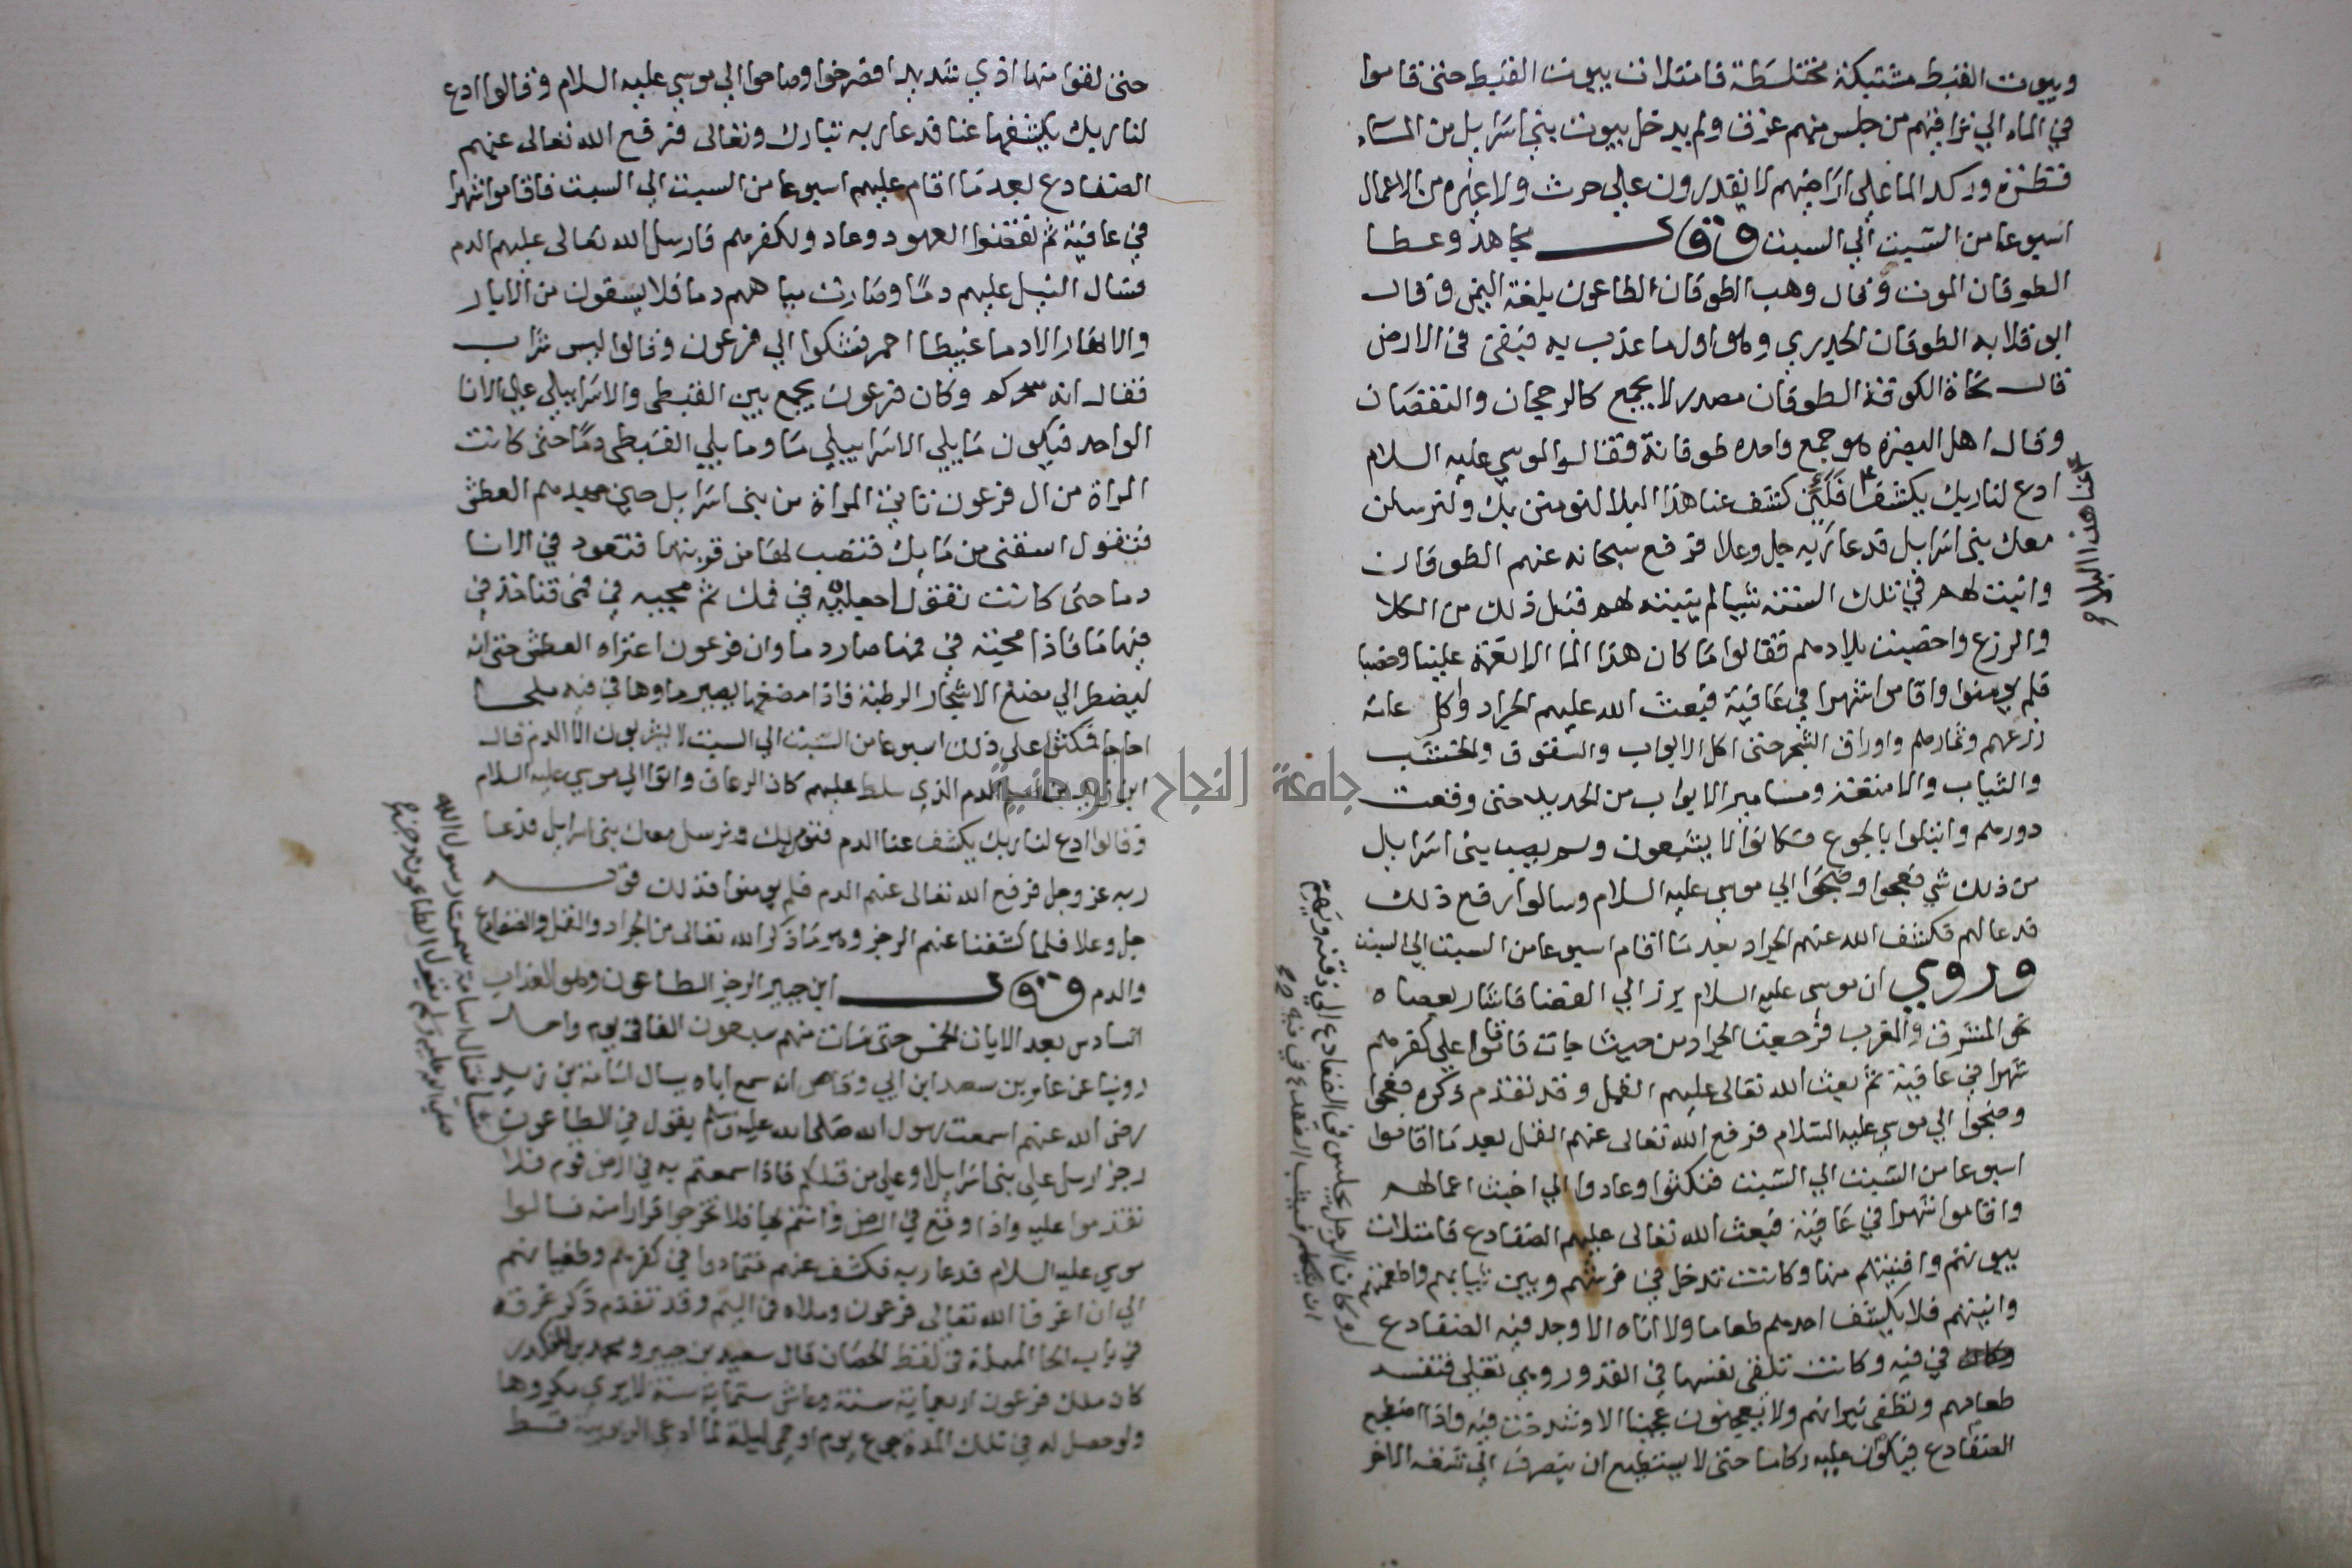 وبيوت القبط مشتبكة مختلطة فامتلات بيوت القبط حتى قاموا
في الماء الي تراقيهم من جلس منهم غرق ولم يدخل بيوت بني اسرايل من الماء
قطرة وركد الما علي اراضيهم لا يقدرون علي حرث ولا غيره من الاعمال
اسبوعا من السبت الي السبت وقال مجاهد وعطا
الطوفان الموت وقال وهب الطوفان الطاعون بلغة اليمن وقال
ابو قلابه الطوفان الجدري وهو اول ما عذب به فبقى في الارض
قال نحاة الكوفة الطوفان مصدر لا يجمع كالرجحان والنقصان
وقال اهل البصرة هو جمع واحده طوفانة فقالوا لموسي عليه السلام
ادع لنا ربك يكشف فلين كشف عنا هذا البلا لنومنن بك ولنرسلن
عنا هذا البلاء
معك بني اسرايل فدعا ربه جل وعلا فرفع سبحانه عنهم الطوفان
وانبت لهم في تلك السنة شيا لم ينبته لهم قبل ذلك من الكلا
والزرع واخصبت بلادهم فقالوا ما كان هذا الما الا نعمة علينا وخصبا
فلم يومنوا واقاموا شهرا في عافية فبعث الله عليهم الجراد واكل عامة
زرعهم وثمارهم واوراق الشجر حتى اكل الابواب والسقوف والخشب
والثياب والامتعة ومسامير الابواب من الحديد حتى وقعت
دورهم وابتلوا بالجوع فكانوا لا يشبعون ولم يصب بني اسرايل
من ذلك شي فعجوا وضجوا الي موسي عليه السلام وسالوا رفع ذلك
فدعا لهم فكشف الله عنهم الجراد بعد ما اقام اسبوعا من السبت الي السبت
وروي ان موسى عليه السلام برز الي الفضا فاشار بعصاه
نحو المشرق والمغرب فرجعت الجراد من حيث جات فاقاموا علي كفرهم
شهرا في عافية ثم بعث الله تعالى عليهم القمل وقد تقدم ذكره فعجوا
وضجوا الي موسي عليه السلام فرفع الله تعالى عنهم القمل بعد ما اقاموا
اسبوعا من السبت الي السبت فنكثوا وعادوا الي اخبث اعمالهم
واقاموا شهرا في عافية فبعث الله تعالى عليهم الضفادع فامتلات
بيوتهم وافنيتهم منها وكانت تدخل في فرشهم وبين ثيابهم واطعمتهم
وانيتهم فلا يكشف احدهم طعاما ولا اناه الا وجد فيه الضفادع
وكان الرجل يجلس في الضفادع الي ذقنه ويهم
ان يتكلم فيثب الضفدع في فيه
في فيه وكانت تلقى نفسها في القدور وهي تغلي فتفسد
طعامهم وتطفى نيرانهم ولا يعجنون عجينا الا وشدخت فيه واذا اضطجع
الضفادع فيكون عليه ركاما حتى لا يستطيع ان ينصرف الي شقه الاخر
حتى لقوا منها اذي شديدا فصرخوا وصاحوا الي موسي عليه السلام وقالوا ادع
لنا ربك يكشفها عنا فدعا ربه تبارك وتعالى فرفع الله تعالى عنهم
الضفادع بعد ما اقام عليهم اسبوعا من السبت الي السبت فاقاموا شهرا
في عافية ثم نقضوا العهود وعادو لكفرهم فارسل الله تعالى عليهم الدم
فسال النيل عليهم دما وصارت مياههم دما فلا يسقون من الابار
والانهار الا دما عبيطا احمر فشكوا الي فرعون وقالوا ليس شراب
فقال انه سحركم وكان فرعون يجمع بين القبطي والاسراييلي علي الانا
الواحد فيكون ما يلي الاسراييلي ما وما يلي القبطى دما حتى كانت
المراة من ال فرعون تاتي المراة من بني اسرايل حين جهدهم العطش
فتقول اسقنى من مايك فتصب لها من قربتها فتعود في الانا
دما حتى كانت تقول اجعليه في فمك ثم مجيه في فمى فتاخذ في
فيها ما فاذا مجته في فمها صار دما وان فرعون اعتراه العطش حتى انه
ليضطر الي مضغ الاشجار الرطبة فاذا مضغها يصير ماوها في فيه ملحا
اجاجا فمكثوا علي ذلك اسبوعا من السبت الي السبت لا يشربون الا الدم قال
ابن زيد بن اسلم الدم الذي سلط عليهم كان الرعاف واتوا الي موسي عليه السلام
وقالوا ادع لنا ربك يكشف عنا الدم فنومن لك ونرسل معك بني اسرايل فدعا
ربه عز وجل فرفع الله تعالى عنهم الدم فلم يومنوا فذلك قوله
جل وعلا فلما كشفنا عنهم الرجز وهو ما ذكر الله تعالى من الجراد والقمل والضفادع
والدم وقال ابن جبير الرجز الطاعون وهو العذاب
السادس بعد الايات الخمس حتى مات منهم سبعون الفا في يوم واحد
روينا عن عامر بن سعد ابن ابي وقاص انه سمع اباه يسال اسامة بن زيد
رضى الله عنهم اسمعت رسول الله صلى الله عليه وسلم يقول في الطاعون
فقال اسامة سمعت رسول الله
صلي الله عليه وسلم يقول الطاعون رجز
رجز ارسل علي بني اسرايل او علي من قبلكم فاذا سمعتم به في ارض قوم فلا
تقدموا عليه واذا وقع في ارض وانتم بها فلا تخرجوا فرارا منه فسالوا
موسي عليه السلام فدعا ربه فكشف عنهم فتمادوا في كفرهم وطغيانهم
الي ان اغرق الله تعالى فرعون وملاه في اليم وقد تقدم ذكر غرقه
في باب الحا المهملة في لفظ الحصان قال سعيد بن جبير ومحمد بن المنكدر
كان ملك فرعون اربعماية سنة وعاش ستماية سنة لا يري مكروها
ولو حصل له في تلك المدة جوع يوم او حمى ليلة لما ادعى الربوبية قط
جامعة النجاح الوطنية